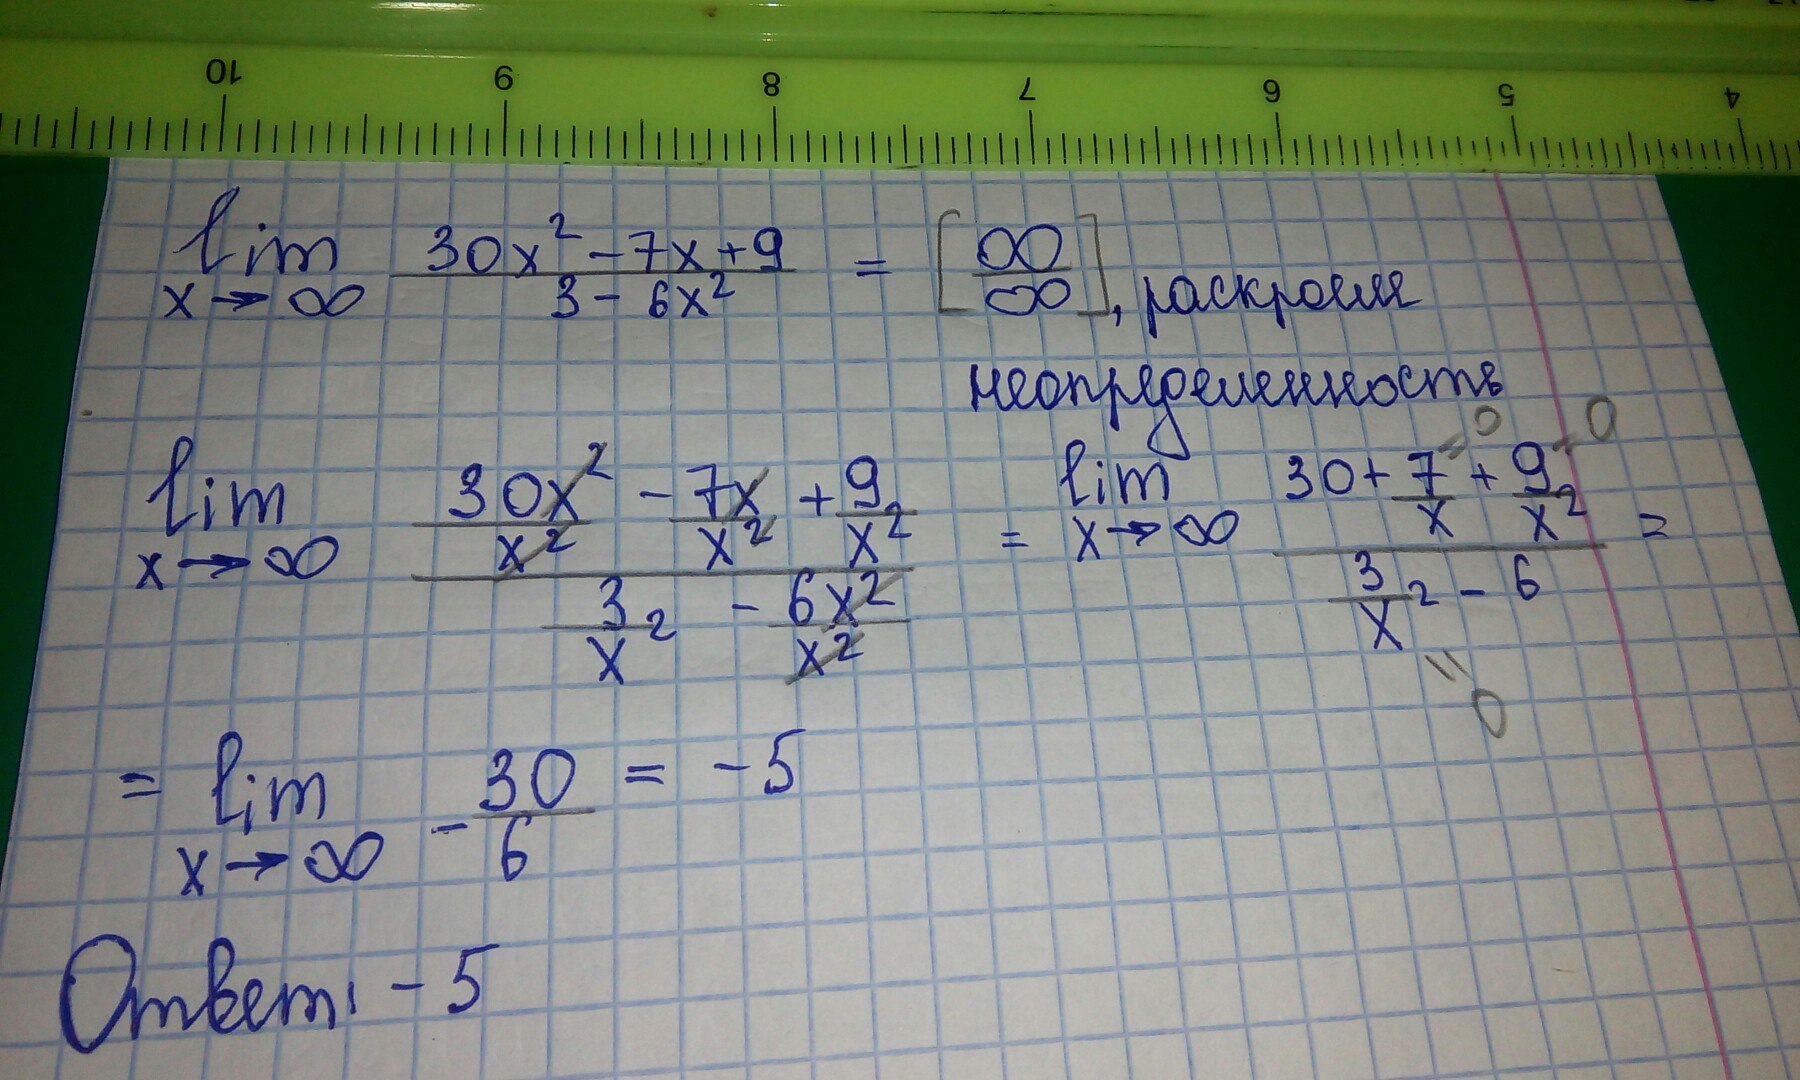 10 9 8 7 6 5 4
lim x→∞ (30x² - 7x + 9)/(3 - 6x²) = [∞/∞], раскроем
неопределенность
lim x→∞ (30x²/x² - 7x/x² + 9/x²)/(3/x² - 6x²/x²) = lim x→∞ (30 + 7/x = 0 + 9/x² = 0)/(3/x² - 6) =
= 0
= lim x→∞ - 30/6 = -5
Ответ: -5